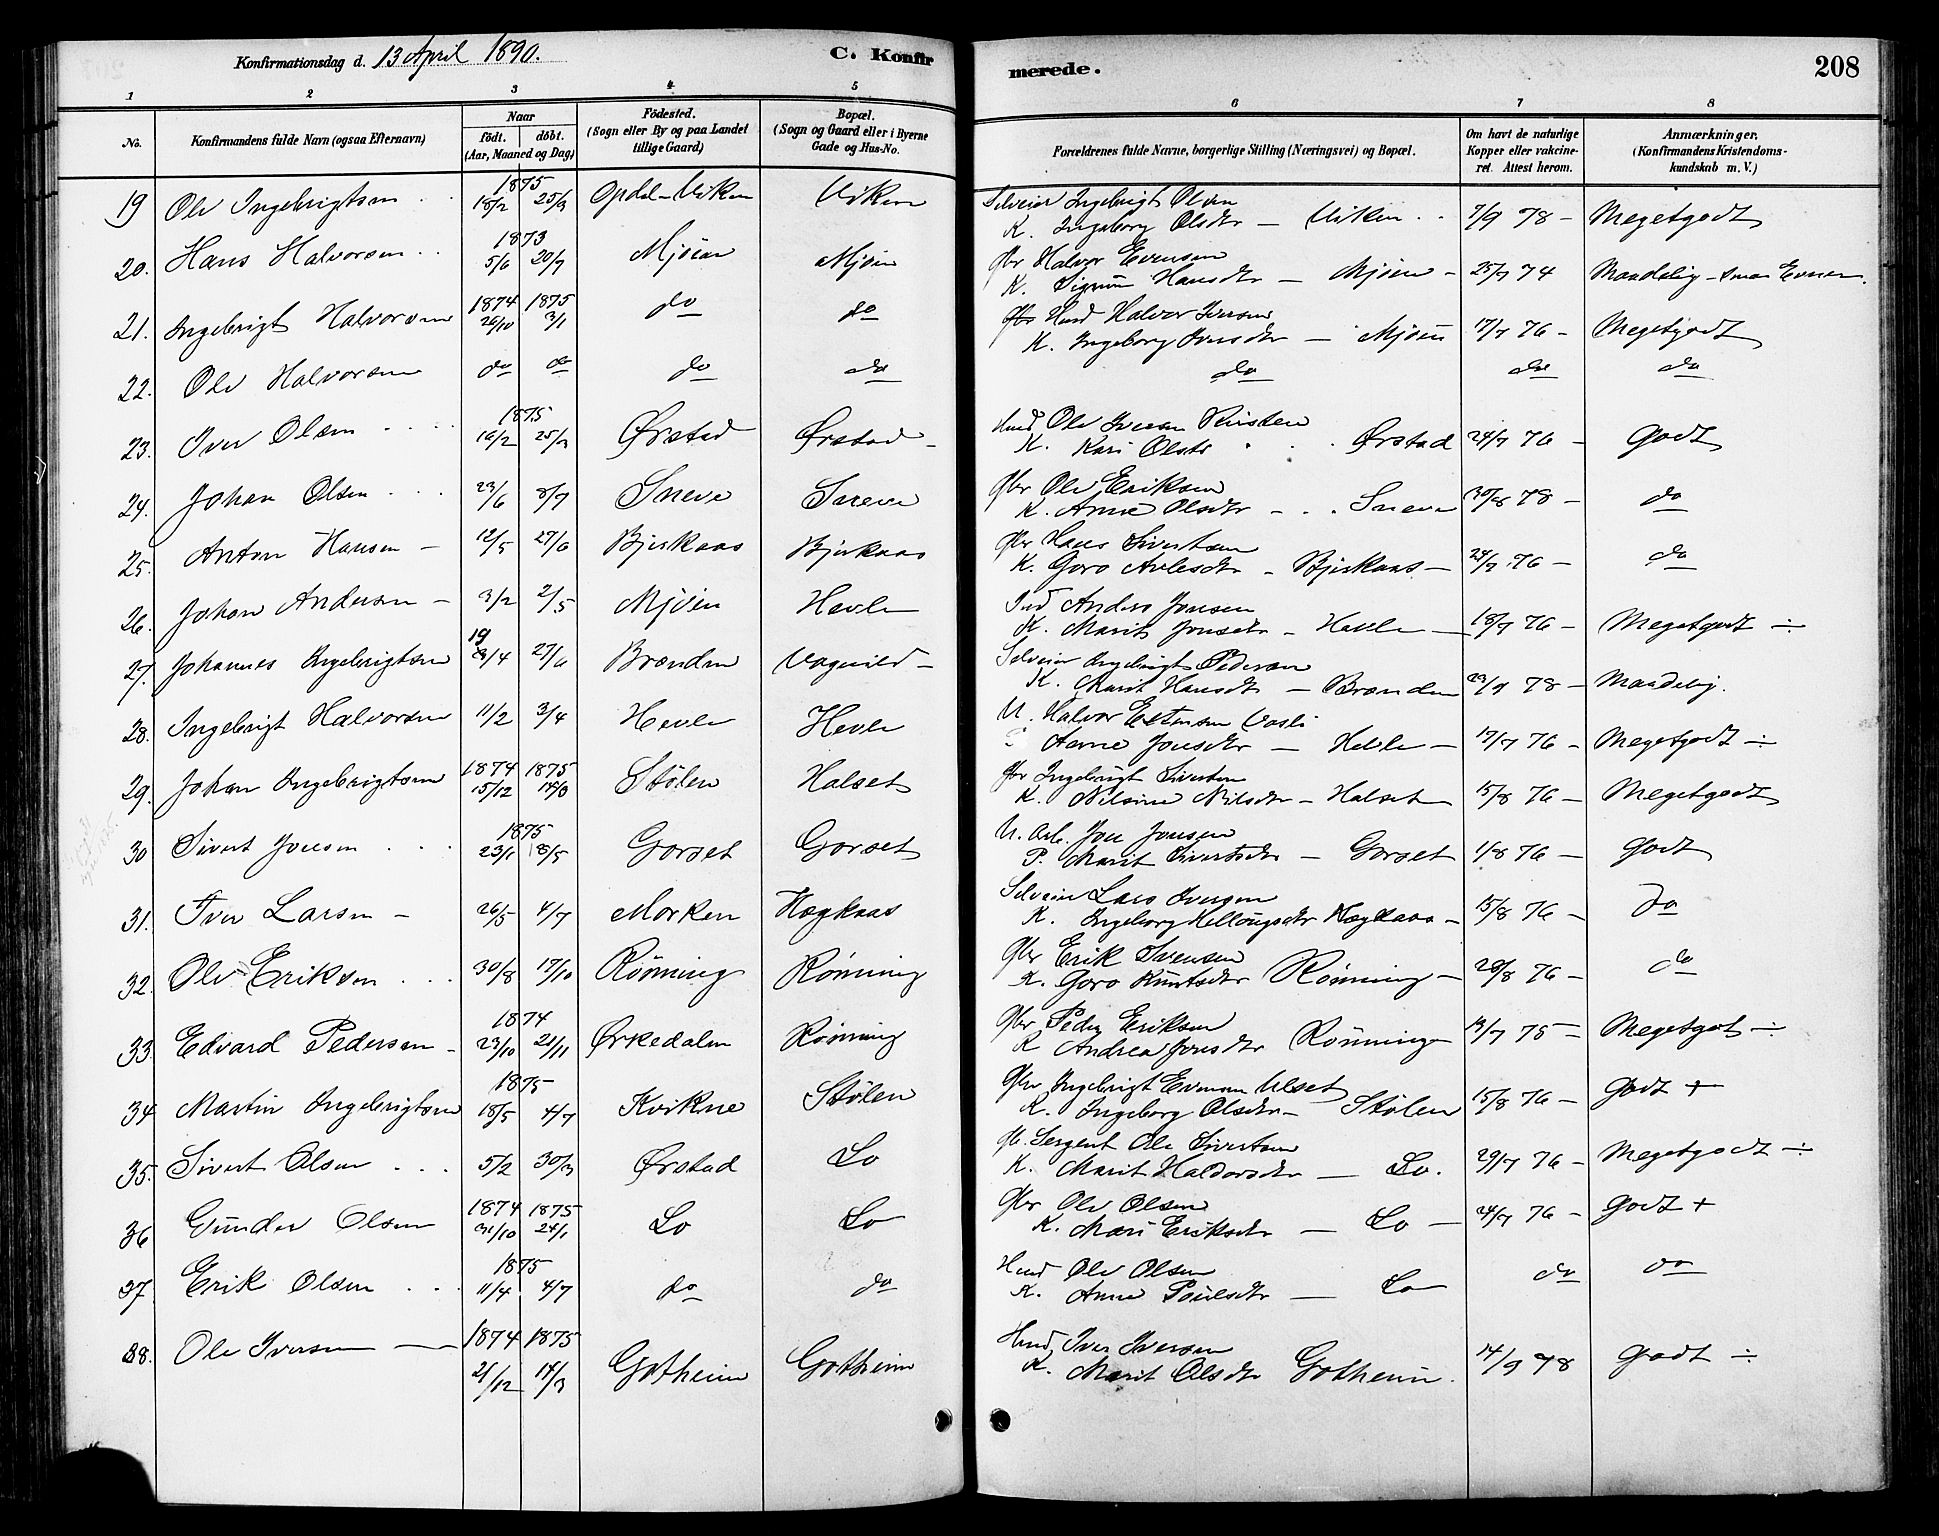 Konfirmationsdag d. 13 April 1890.
C. Konfir
merede.
208
1 2 3 4 5 6 7 8
No.
Konfirmandens fulde Navn (ogsaa Efternavn)
Naar
födt. döbt.
(Aar, Maaned og Dag)
Födested.
(Sogn eller By og paa Landet
tillige Gaard)
Bopæl.
(Sogn og Gaard eller i Byerne
Gade og Hus-No.
Forældrenes fulde Navne, borgerlige Stilling (Næringsvei) og Bopæl.
Om havt de naturlige
Kopper eller vakcine-
ret. Attest herom.
Anmærkninger.
(Konfirmandens Kristendoms-
kundskab m. V.)
1875
19 Ole Ingebrigtsen 18/2 25/3 Opdal-Viken Viken Selveier Ingebrigt Olsen
K. Ingeborg Olsdtr - Viken 7/9 78 - Megetgodt
1873
20. Hans Halvorsen 5/6 20/7 Mjöen Mjöen Gbr Halvor Evensen
K. Sigrun Hansdtr - Mjöen - 25/7 74 Maadelig - smaa Evner
1874 1875
21. Ingebrigt Halvorsen 26/10 3/1 do do Gbr Husd Halvor Iversen
K. Ingeborg Jonsdtr - Mjöen 17/7 76 - Megetgodt
22. Ole Halvorsen do do do do do do do
1875
23. Iver Olsen 16/2 25/3 Ørstad Ørstad - Husd Ole Iversen
K. Kari Olsdtr Ørstad 24/7 76 - Godt
24. Johan Olsen 23/6 8/7 Sneve Sneve Gbr Ole Eriksen
K. Anne Olsdtr - Sneve 30/8 78 - do
25. Anton Hansen - 12/5 27/6 Bjerkaas Bjerkaas Gbr Hans Sivertsen
K. Goro Arlesdtr - Bjerkaas - 24/7 76 - do
26. Johan Andersen - 3/2 2/5 Mjöen Hevle Ind Anders Jonsen
K. Marit Jonsdtr - Hevle - 18/7 76 - Megetgodt ÷
19
27. Johannes Ingebrigtsen /4 27/6 Brænden Vognild - Selveier Ingebrigt Pedersen
K. Marit Hansdtr - Brænden 78 - Maadelig.
28. Ingebrigt Halvorsen 11/2 3/4 Hevle Hevle U. Halvor Estensen Vasli
Anne Jonsdtr - Hevle - 17/7 76 - Megetgodt ÷
1874 1875
29. Johan Ingebrigtsen 15/12 14/3 Stølen Halset Gbr Ingebrigt Sivertsen
K. Nilsine Nilsdtr - Halset 15/8 76 - Megetgodt
1875
30 Sivert Jonsen 23/1 8/5 Gorset Gorset U. Arb. Jon Jonsen
P. Marit Sivertsdtr - Gorset 1/8 76 - Godt
31. Iver Larsen - 26/5 4/7 Morken Hægkaas Selveier Lars Iversen
K. Ingeborg Kellougsdtr Hægkaas - 15/8 76 - do
32. Ole Eriksen 30/8 17/10 Rönning Rönning Gbr Erik Iversen
K. Goro Knutsdtr Rönning - 20/8 76 - do
1874
33. Edvard Pedersen - 23/10 21/11 Ørkedalen Rönning Gbr Peder Eriksen
K Andrea Jonsdtr Rönning 75 - Megetgodt ÷
1875
34 Martin Ingebrigtsen 18/5 4/7 Kvikne Stølen Gbr Ingebrigt Evensen Ulset
K. Ingeborg Olsdtr - Stølen 15/8 76 - Godt +
35. Sivert Olsen 5/2 30/3 Ørstad Lo Gb. Sergent Ole Sivertsen
K. Marit Haldorsdtr - Lo. 29/7 76 - Megetgodt ÷
1874 1875
36 Gunder Olsen 31/10 24/1 Lo Lo Gbr Ole Olsen
K. Mari Eriksdtr - Lo - 24/7 76 - Godt +
1875
37. Erik Olsen 11/4 4/7 do do Husd Ole Olsen
K. Anne Poulsdtr - Lo do do
1874 1875
38. Ole Iversen 21/12 14/3 Gotheim Gotheim Husd Iver Iversen
K. Marit Olsdtr Gotheim. 14/9 78 Godt ÷